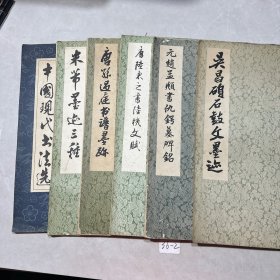 中國現代書法選
米芾墨迹三種
唐孫過庭書譜墨跡
唐陸柬之書陸機文賦
元趙孟頫書仇鍔墓碑銘
吳昌碩石鼓文墨迹